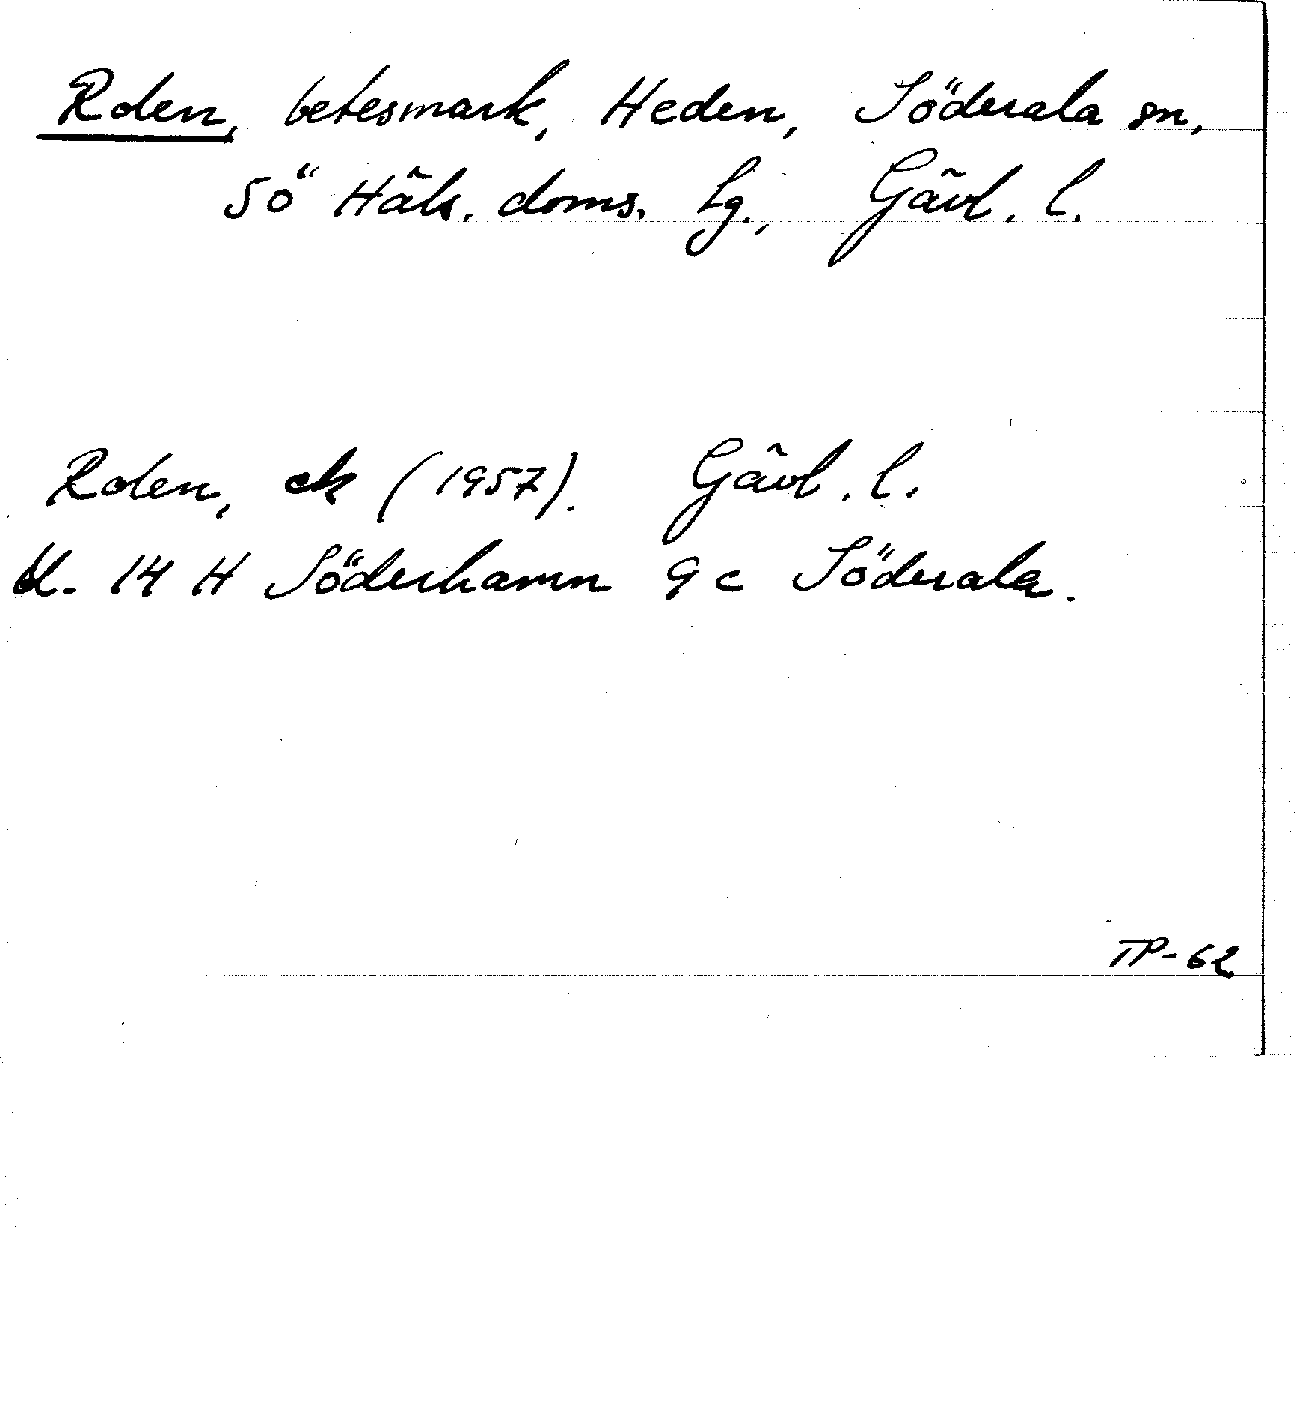 Roten, betesmark, Heden, Söderala sn,
Sö Häls. doms. lg., Gävl. l.
Roten, ek (1957). Gävl. l.
bl. 14 H Söderhamn 9 c Söderala.
TP-62